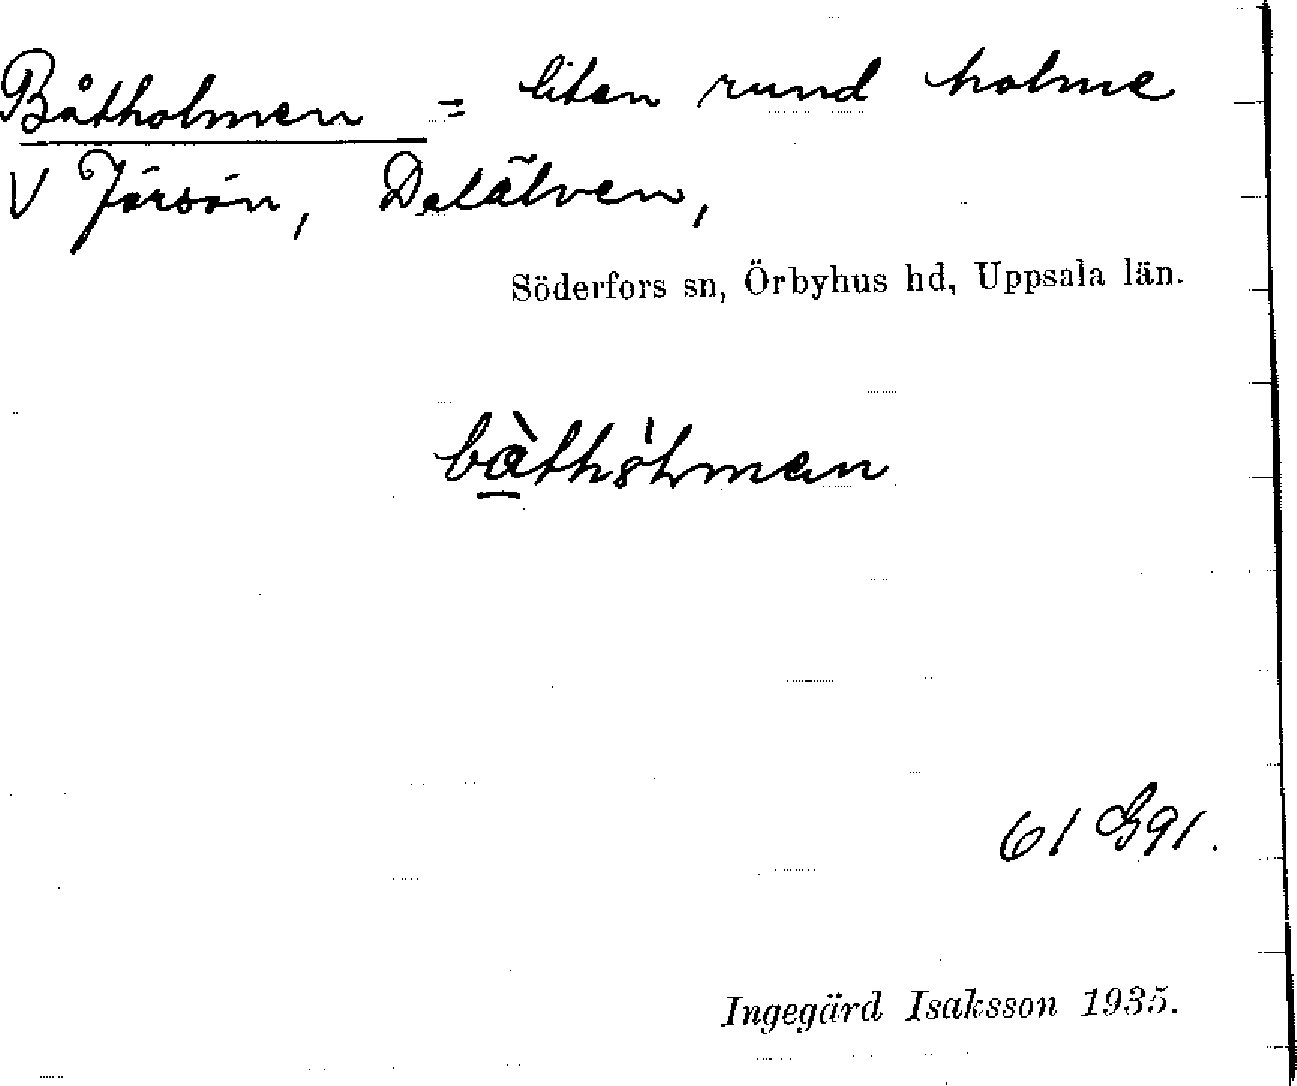 Båtholmen = liten rund holme
V Jörsön, Dalälven,
Söderfors sn, Örbyhus hd, Uppsala län.
61 G91.
Ingegärd Isaksson 1935.